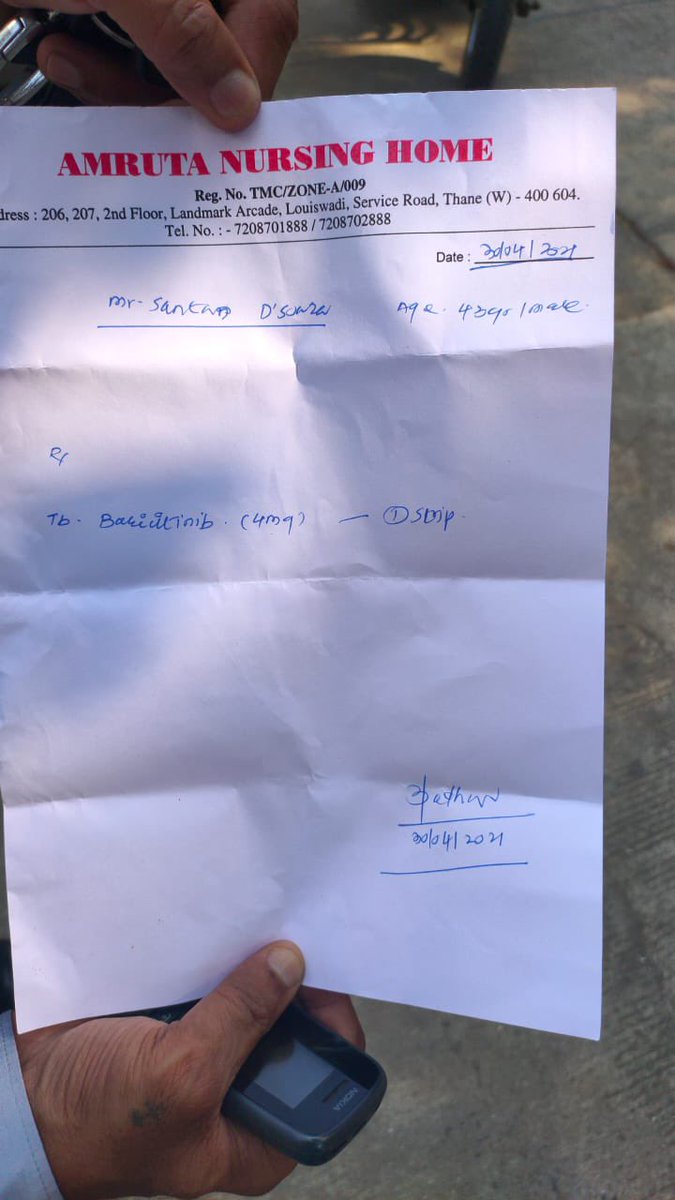 AMRUTA NURSING HOME
Reg. No. TMC/ZONE-A/009
dress : 206, 207, 2nd Floor, Landmark Arcade, Louiswadi, Service Road, Thane (W) - 400 604.
Tel. No. : - 7208701888 / 7208702888
Date : 30/04/2021
Mr. D'souza Age. 43yr/male.
Rx
Tb. Baricitinib. (4mg) — ① strip.
30/04/2021
NOKIA